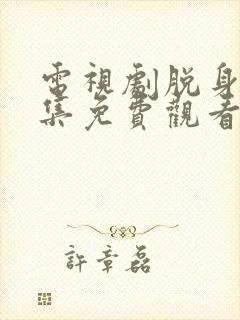 電視劇脫身
集免費觀看
許章磊